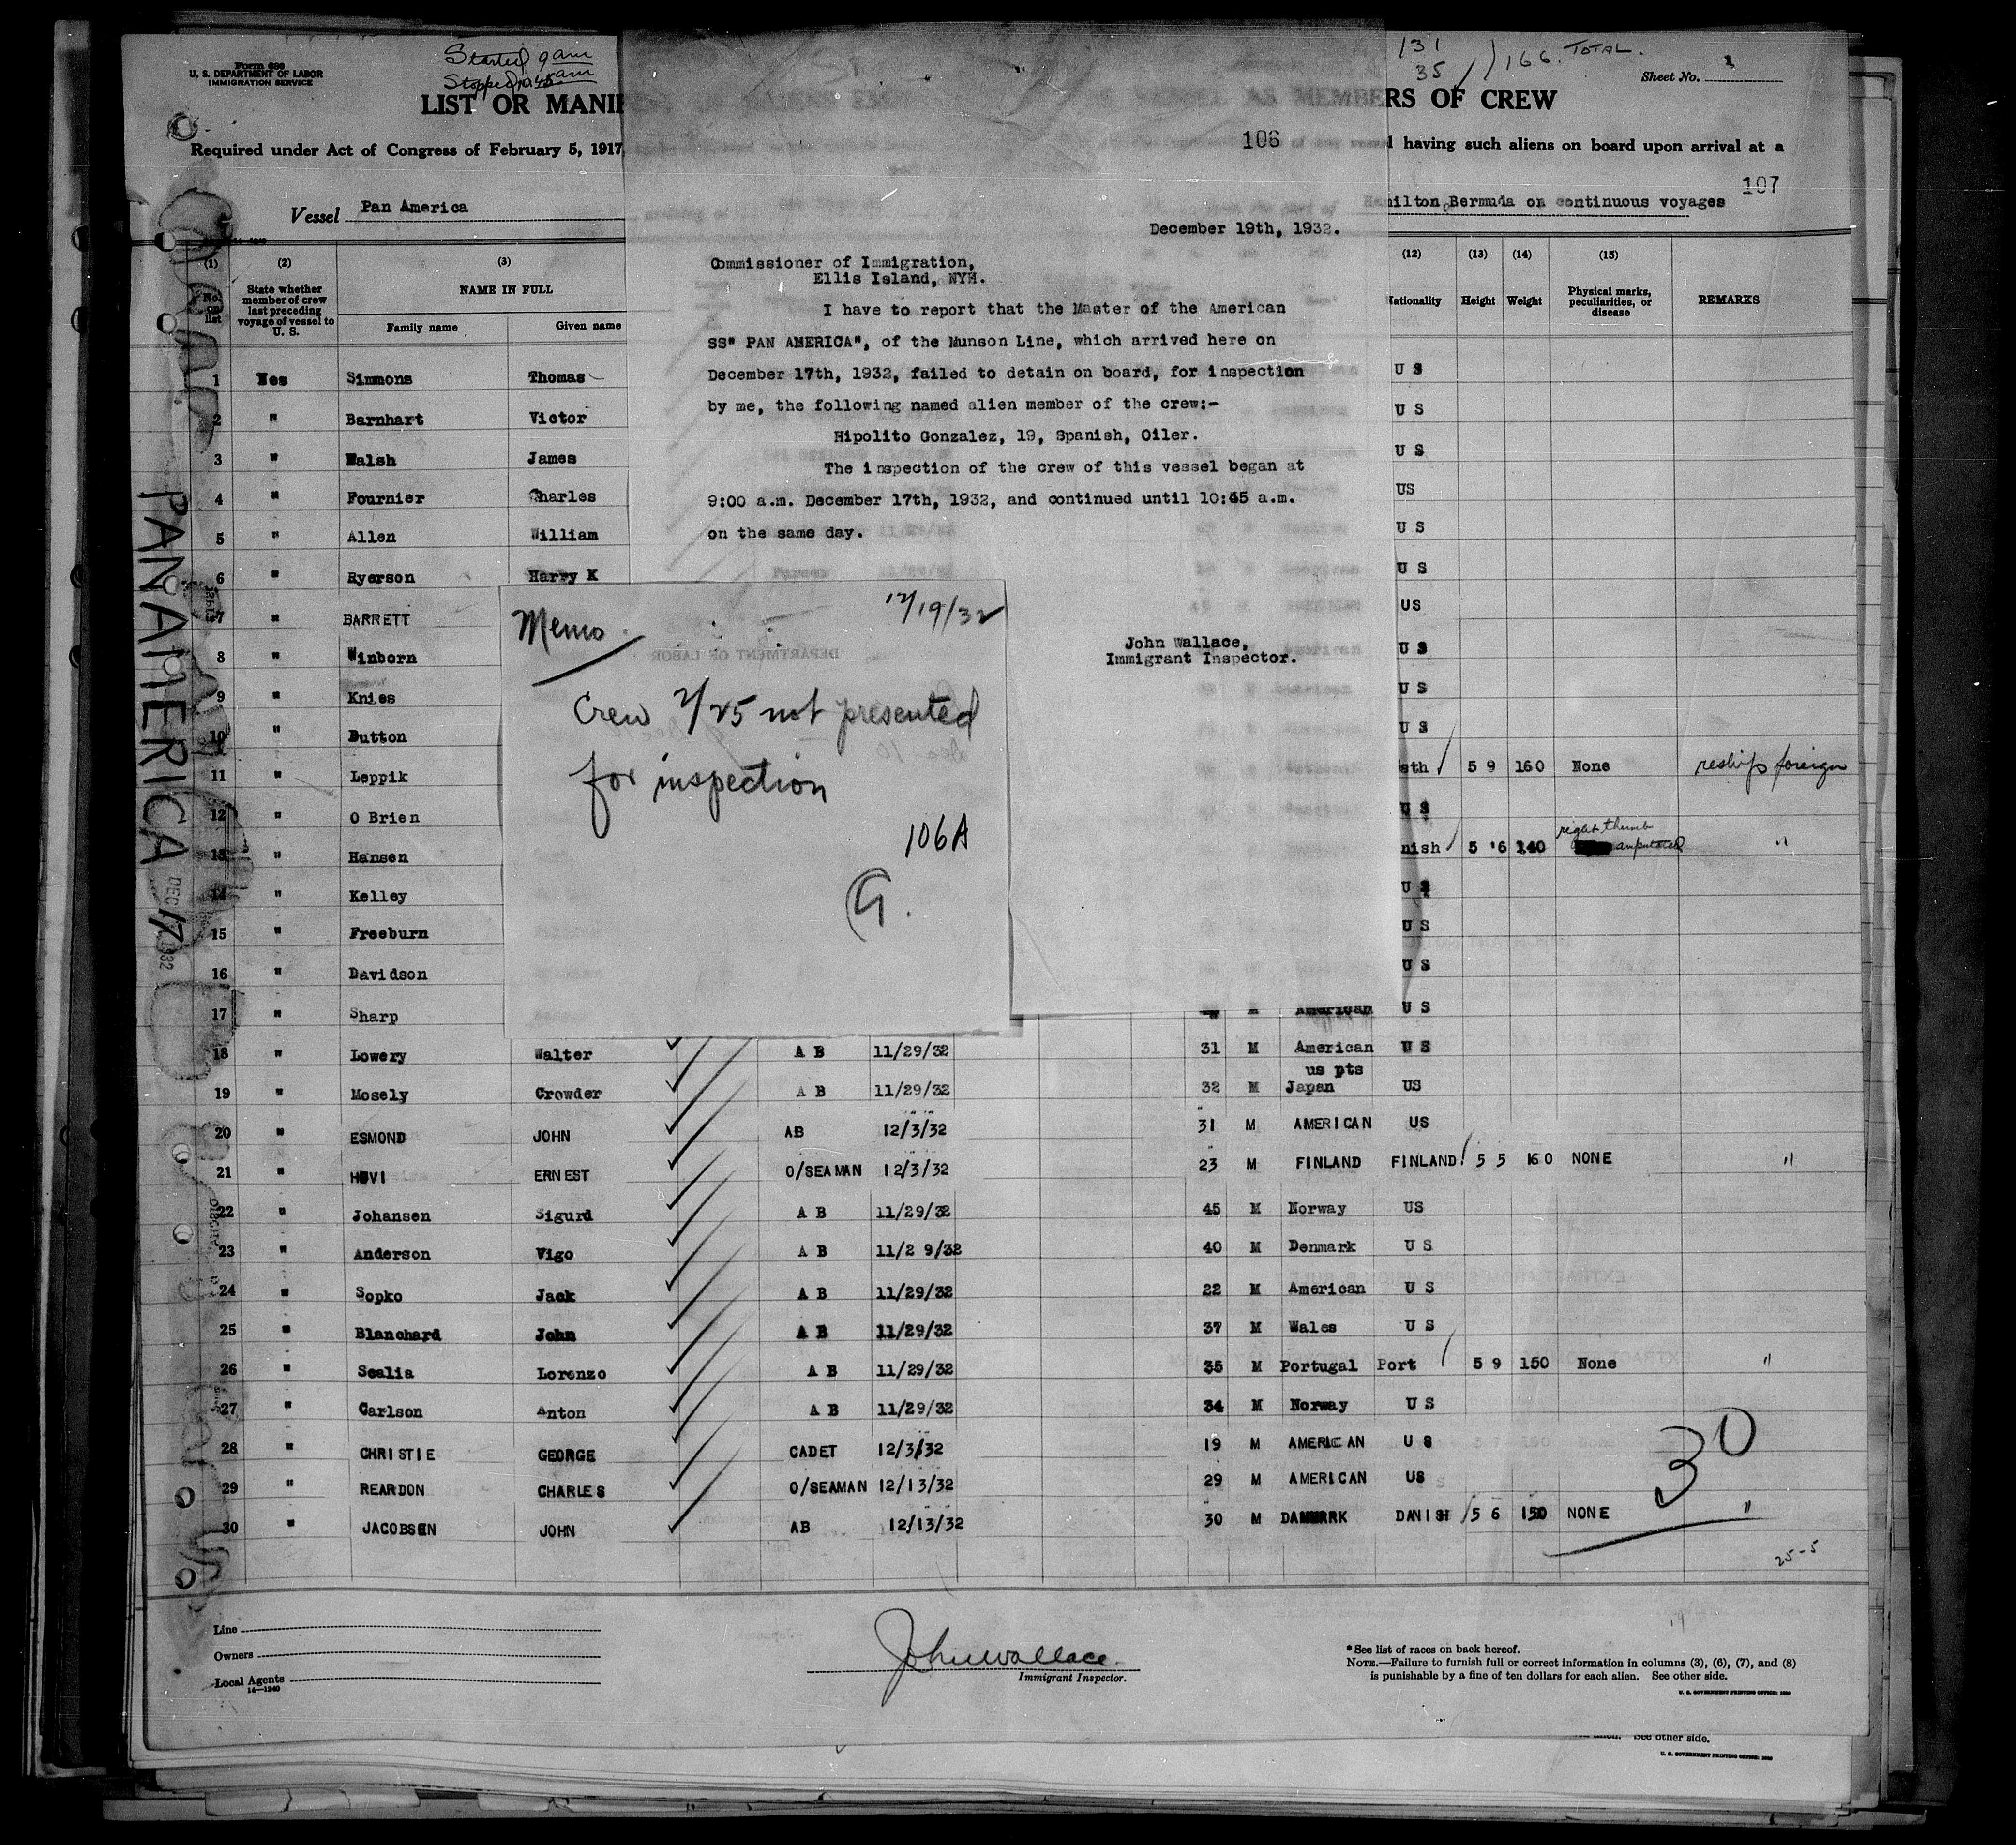 Form 680
U. S. DEPARTMENT OF LABOR
IMMIGRATION SERVICE
Started 9 am
Stopped 10 45 am
131
35
166. TOTAL.
Sheet No. 1
LIST OR MANI
RS OF CREW
Required under Act of Congress of February 5, 1917,
having such aliens on board upon arrival at a
107
Vessel Pan America
Hamilton, Bermuda on continuous voyages
106
December 19th, 1932.
Commissioner of Immigration,
Ellis Island, NYH.
I have to report that the Master of the American
SS" PAN AMERICA", of the Munson Line, which arrived here on
December 17th, 1932, failed to detain on board, for inspection
by me, the following named alien member of the crew:-
Hipolito Gonzalez, 19, Spanish, Oiler.
The inspection of the crew of this vessel began at
9:00 a.m. December 17th, 1932, and continued until 10:45 a.m.
on the same day.
John Wallace,
Immigrant Inspector.
Memo 12/19/32
DEPARTMENT OF LABOR
Crew 2/25 not presented
for inspection
106A
G.
PAN AMERICA DEC 17 1932
(1) (2) (3) (12) (13) (14) (15)
No. on list
State whether member of crew last preceding voyage of vessel to U. S.
NAME IN FULL
Family name Given name
Nationality Height Weight Physical marks, peculiarities, or disease REMARKS
1 Yes Simmons Thomas U S
2 " Barnhart Victor U S
3 " Walsh James U S
4 " Fournier Charles US
5 " Allen William U S
6 " Ryerson Harry K U S
7 " BARRETT US
8 " Winborn U S
9 " Knies U S
10 " Dutton U S
11 " Leppik sth 5 9 160 None reships foreign
12 " O Brien U S
13 " Hansen nish 5 '6 140 right thumb amputated "
14 " Kelley U S
15 " Freeburn U S
16 " Davidson U S
17 " Sharp M American U S
18 " Lowery Walter A B 11/29/32 31 M American U S
19 " Mosely Crowder A B 11/29/32 32 M us pts Japan US
20 " ESMOND JOHN AB 12/3/32 31 M AMERICAN US
21 " HOVI ERNEST O/SEAMAN 12/3/32 23 M FINLAND FINLAND 5 5 160 NONE "
22 " Johansen Sigurd A B 11/29/32 45 M Norway US
23 " Anderson Vigo A B 11/2 9/32 40 M Denmark U S
24 " Sopko Jack A B 11/29/32 22 M American U S
25 " Blanchard John A B 11/29/32 37 M Wales U S
26 " Sealia Lorenzo A B 11/29/32 35 M Portugal Port 5 9 150 None "
27 " Carlson Anton A B 11/29/32 34 M Norway U S
28 " CHRISTIE GEORGE CADET 12/3/32 19 M AMERICAN U S
29 " REARDON CHARLES O/SEAMAN 12/13/32 29 M AMERICAN US
30 " JACOBSEN JOHN AB 12/13/32 30 M DANMARK DANISH 5 6 150 NONE "
30
25-5
Line
Owners
Local Agents
14—1240
John Wallace
Immigrant Inspector.
*See list of races on back hereof.
NOTE.—Failure to furnish full or correct information in columns (3), (6), (7), and (8)
is punishable by a fine of ten dollars for each alien. See other side.
U. S. GOVERNMENT PRINTING OFFICE:
See other side.
U. S. GOVERNMENT PRINTING OFFICE: